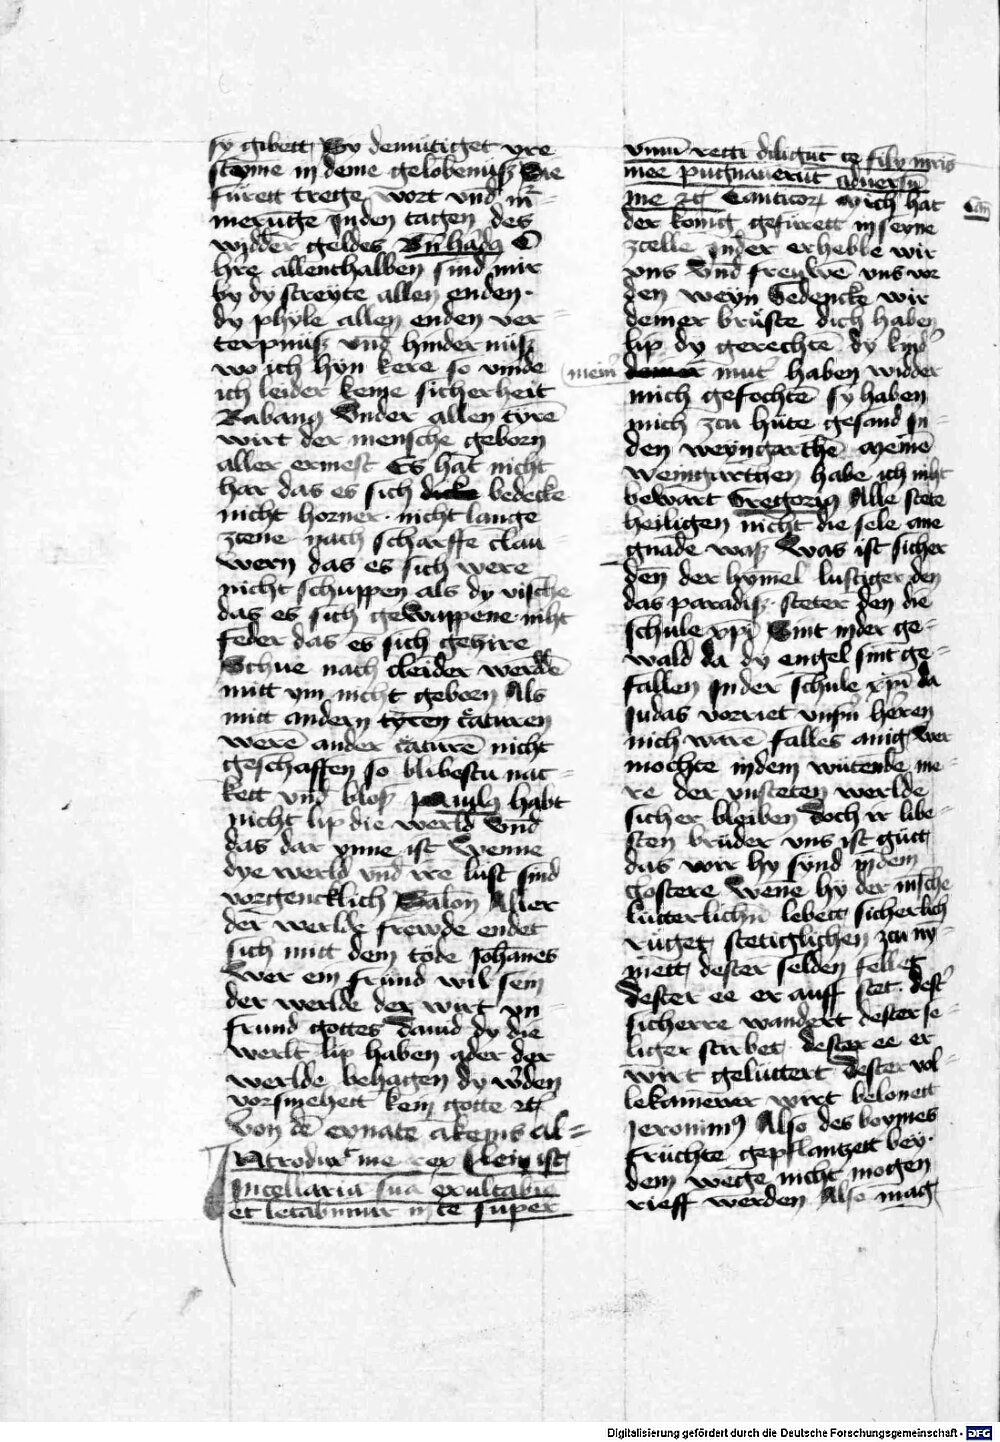 sy gibett Sy demütiget yre
steyme in deme gelobenüß Sie
fürett trege wort vnd in̄
merütge Inden tagen des
widder geldes Bn̄hadꝯ O
hre allenthalben sind mir
by dy streyte allen enden
dy phyle allen enden ver=
terpnüß vnd hinder nüß
wo ich hyn kere so vinde
ich leider keine sicherheit
Rabanꝯ Vnder allen tyrē
wirt der mensche geborn
aller ermest Es hat nicht
har das es sich bedecke
nicht horner nicht lange
zcene nach scharffe clau=
wern das es sich were
nicht schuppen als dy vische
das es sich gewappene niht
feder das es sich gezire
Schue nach cleider werdē
mitt ym nicht geborn Als
mitt andern tyren c̄aturen
werē ander c̄aturē nicht
geschaffen so blibestu nac=
kett vnd bloß paulꝯ habt
nicht lip die werld vnd
das dar ynne ist Wenne
dye werld vnd ire lust sind
vorgencklich Salon̄ Aller
der werlde frewde endet
sich mitt dem tode Johānes
Wer ein fründ wil sein
der werlde der wirt vn=
frund gottes dauid dy die
werlt lip haben ader der
werlde behagen dy w̄den
vorsmehett kein gotte etc̄
Von dē
Introdux̄ me rex
Incellaria sua exultabim
et letabimur in te super
vnn̄ recti diligūt te filij mr̄is
mee pugnauerūt aduersū
me etc̄ Canticoꝝ Mich hat
der konig gefürett in seyne
zcelle Inder erheble wir
vns Vnd freuwe vns vor
den weyn Gedencke wir
deiner brüste dich haben
lip dy gerechtē dy kindꝰ
meinꝰ mut̄ haben widder
mich gefochtē sy haben
mich zcu hüte gesand In=
den weyngarthē Meinē
weingarthen habe ich niht
bewart Gregoriꝯ Alle stete
heiligen nicht die sele ane
gnade waß Was ist sicher
den der hymel lustiger den
das paradiß steter den die
schule xp̄i Sint inder ge=
wald da dy engel sint ge=
fallen In der schule xp̄i da
Judas vorriet vnsn̄ herren
nich warē falles anig wer
mochte indem wütende me=
re der vnsteten werlde
sicher bleiben Doch ir libe=
sten brüder vns ist gütt
das wir hy synd indem
clostere Wenē hy der mēsche
lütterlichn̄ lebett sicherlich
rüget stetiglichen zcu ny=
mett dester selden fellet
dester ee er auff stet dest̄
sicherre wandert dester se=
liger stirbet dester ee er
wirt gelüttert dester vol=
lekamener wirt belonett
Jeronimꝯ Also des boymes
früchte gepflantzett bey
dem wege nicht mogen
rieff werden Also mag